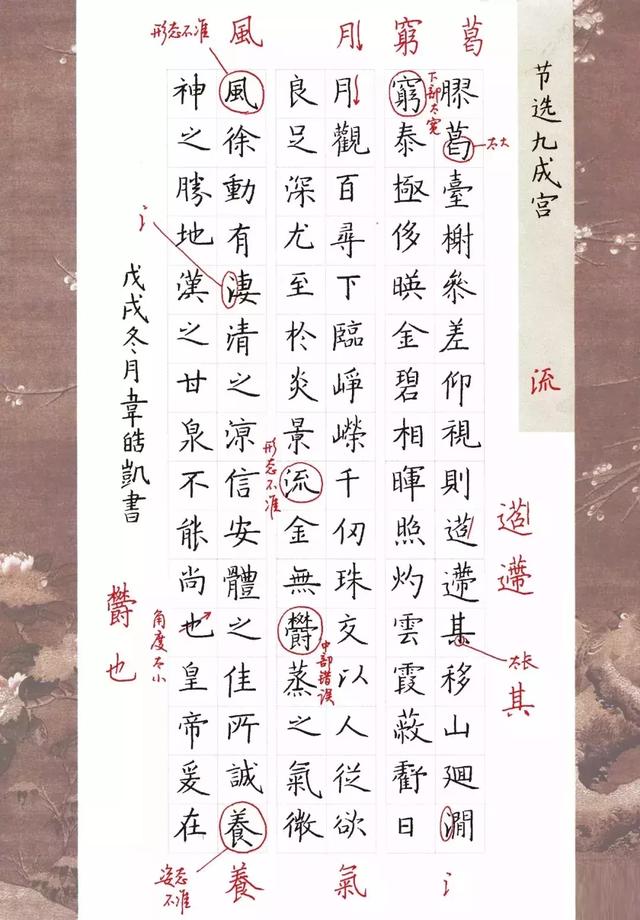 节选九成宫
流
葛
膠葛臺榭叅差仰視則迢遰其移山廻澗
太大
迢遰
太长
其
氵
窮
窮泰極侈暎金碧相暉照灼雲霞蔽虧日
下部太宽
月
月觀百尋下臨崢嶸千仞珠交以人從欲
氣
良足深尤至於炎景流金無鬱蒸之氣微
形态不准
中部错误
風
形态不准
風徐動有淒清之涼信安體之佳所誠養
氵
養
姿态不准
神之勝地漢之甘泉不能尚也皇帝爰在
角度不小
鬱也
戊戌冬月韋皓凱書